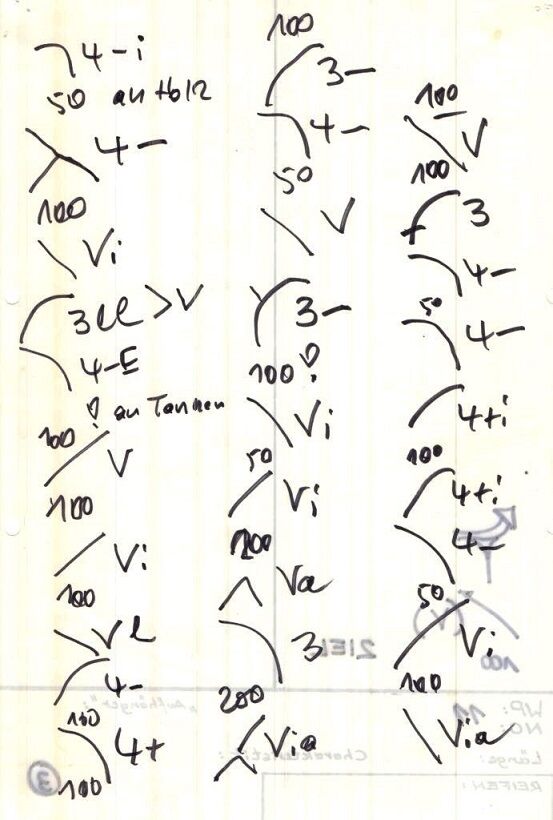 4-i
50 an Holz
4-
100
Vi
3 ll > V
4-E
! an Tannen
100
V
100
Vi
100
Vl
4-
100
4+
100
100
3-
4-
50
V
3-
100 !
Vi
50
Vi
100
Va
3
200
Via
100
V
100
3
4-
50
4-
4+i
100
4+i
4-
50
Vi
100
Via
ZIEL
100
"Aufhänger":
WP: 11
NO:
Länge:
Charakteristik:
REIFEN:
3